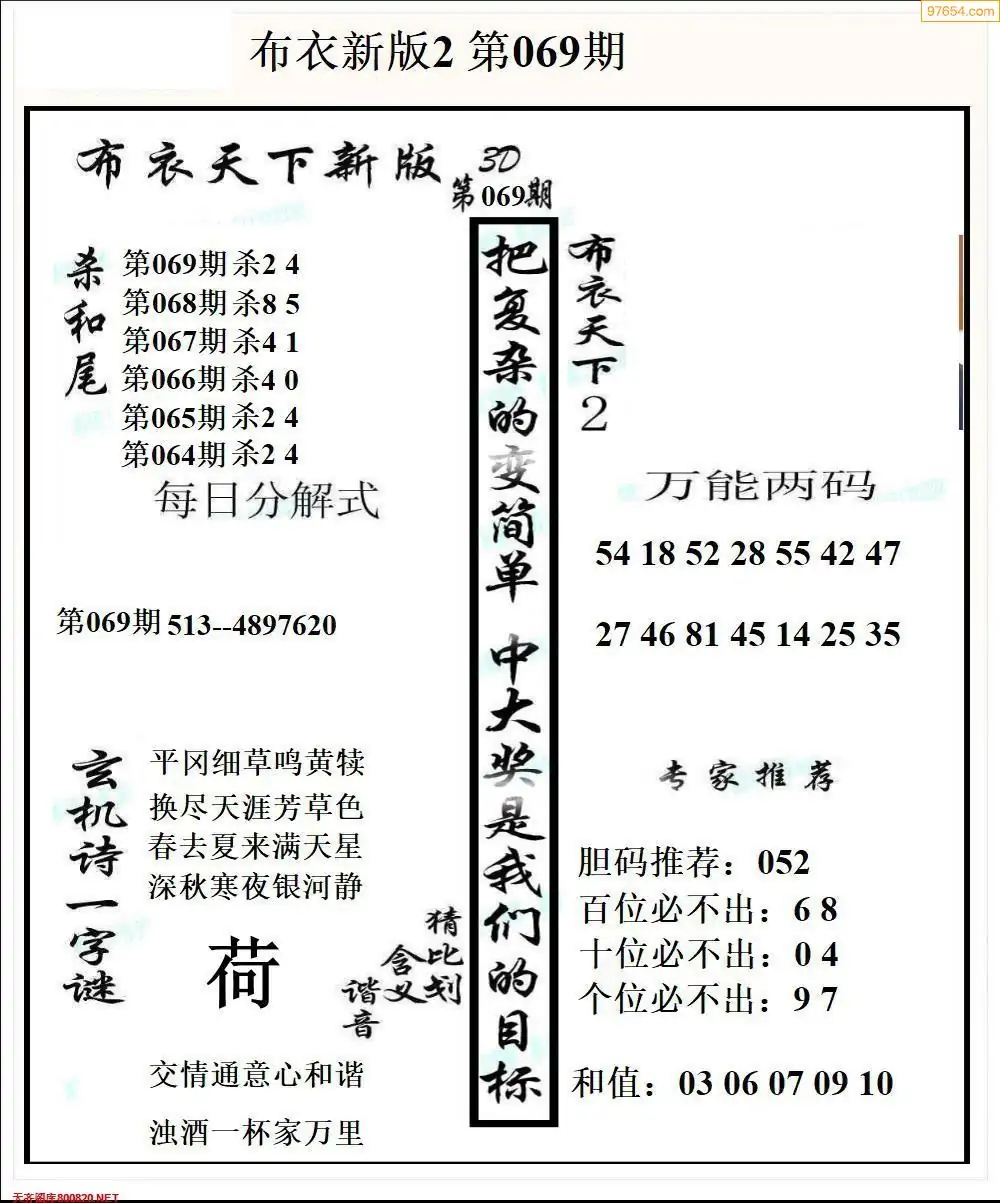 97654.com
布衣新版2 第069期
布衣天下新版 3D
第069期
杀和尾
第069期杀2 4
第068期杀8 5
第067期杀4 1
第066期杀4 0
第065期杀2 4
第064期杀2 4
每日分解式
第069期 513--4897620
玄机诗一字谜
平冈细草鸣黄犊
换尽天涯芳草色
春去夏来满天星
深秋寒夜银河静
荷
猜比划
含义
谐音
交情通意心和谐
浊酒一杯家万里
把复杂的变简单 中大奖是我们的目标
布衣天下2
万能两码
54 18 52 28 55 42 47
27 46 81 45 14 25 35
专家推荐
胆码推荐：052
百位必不出：6 8
十位必不出：0 4
个位必不出：9 7
和值：03 06 07 09 10
天齐图库800820.NET